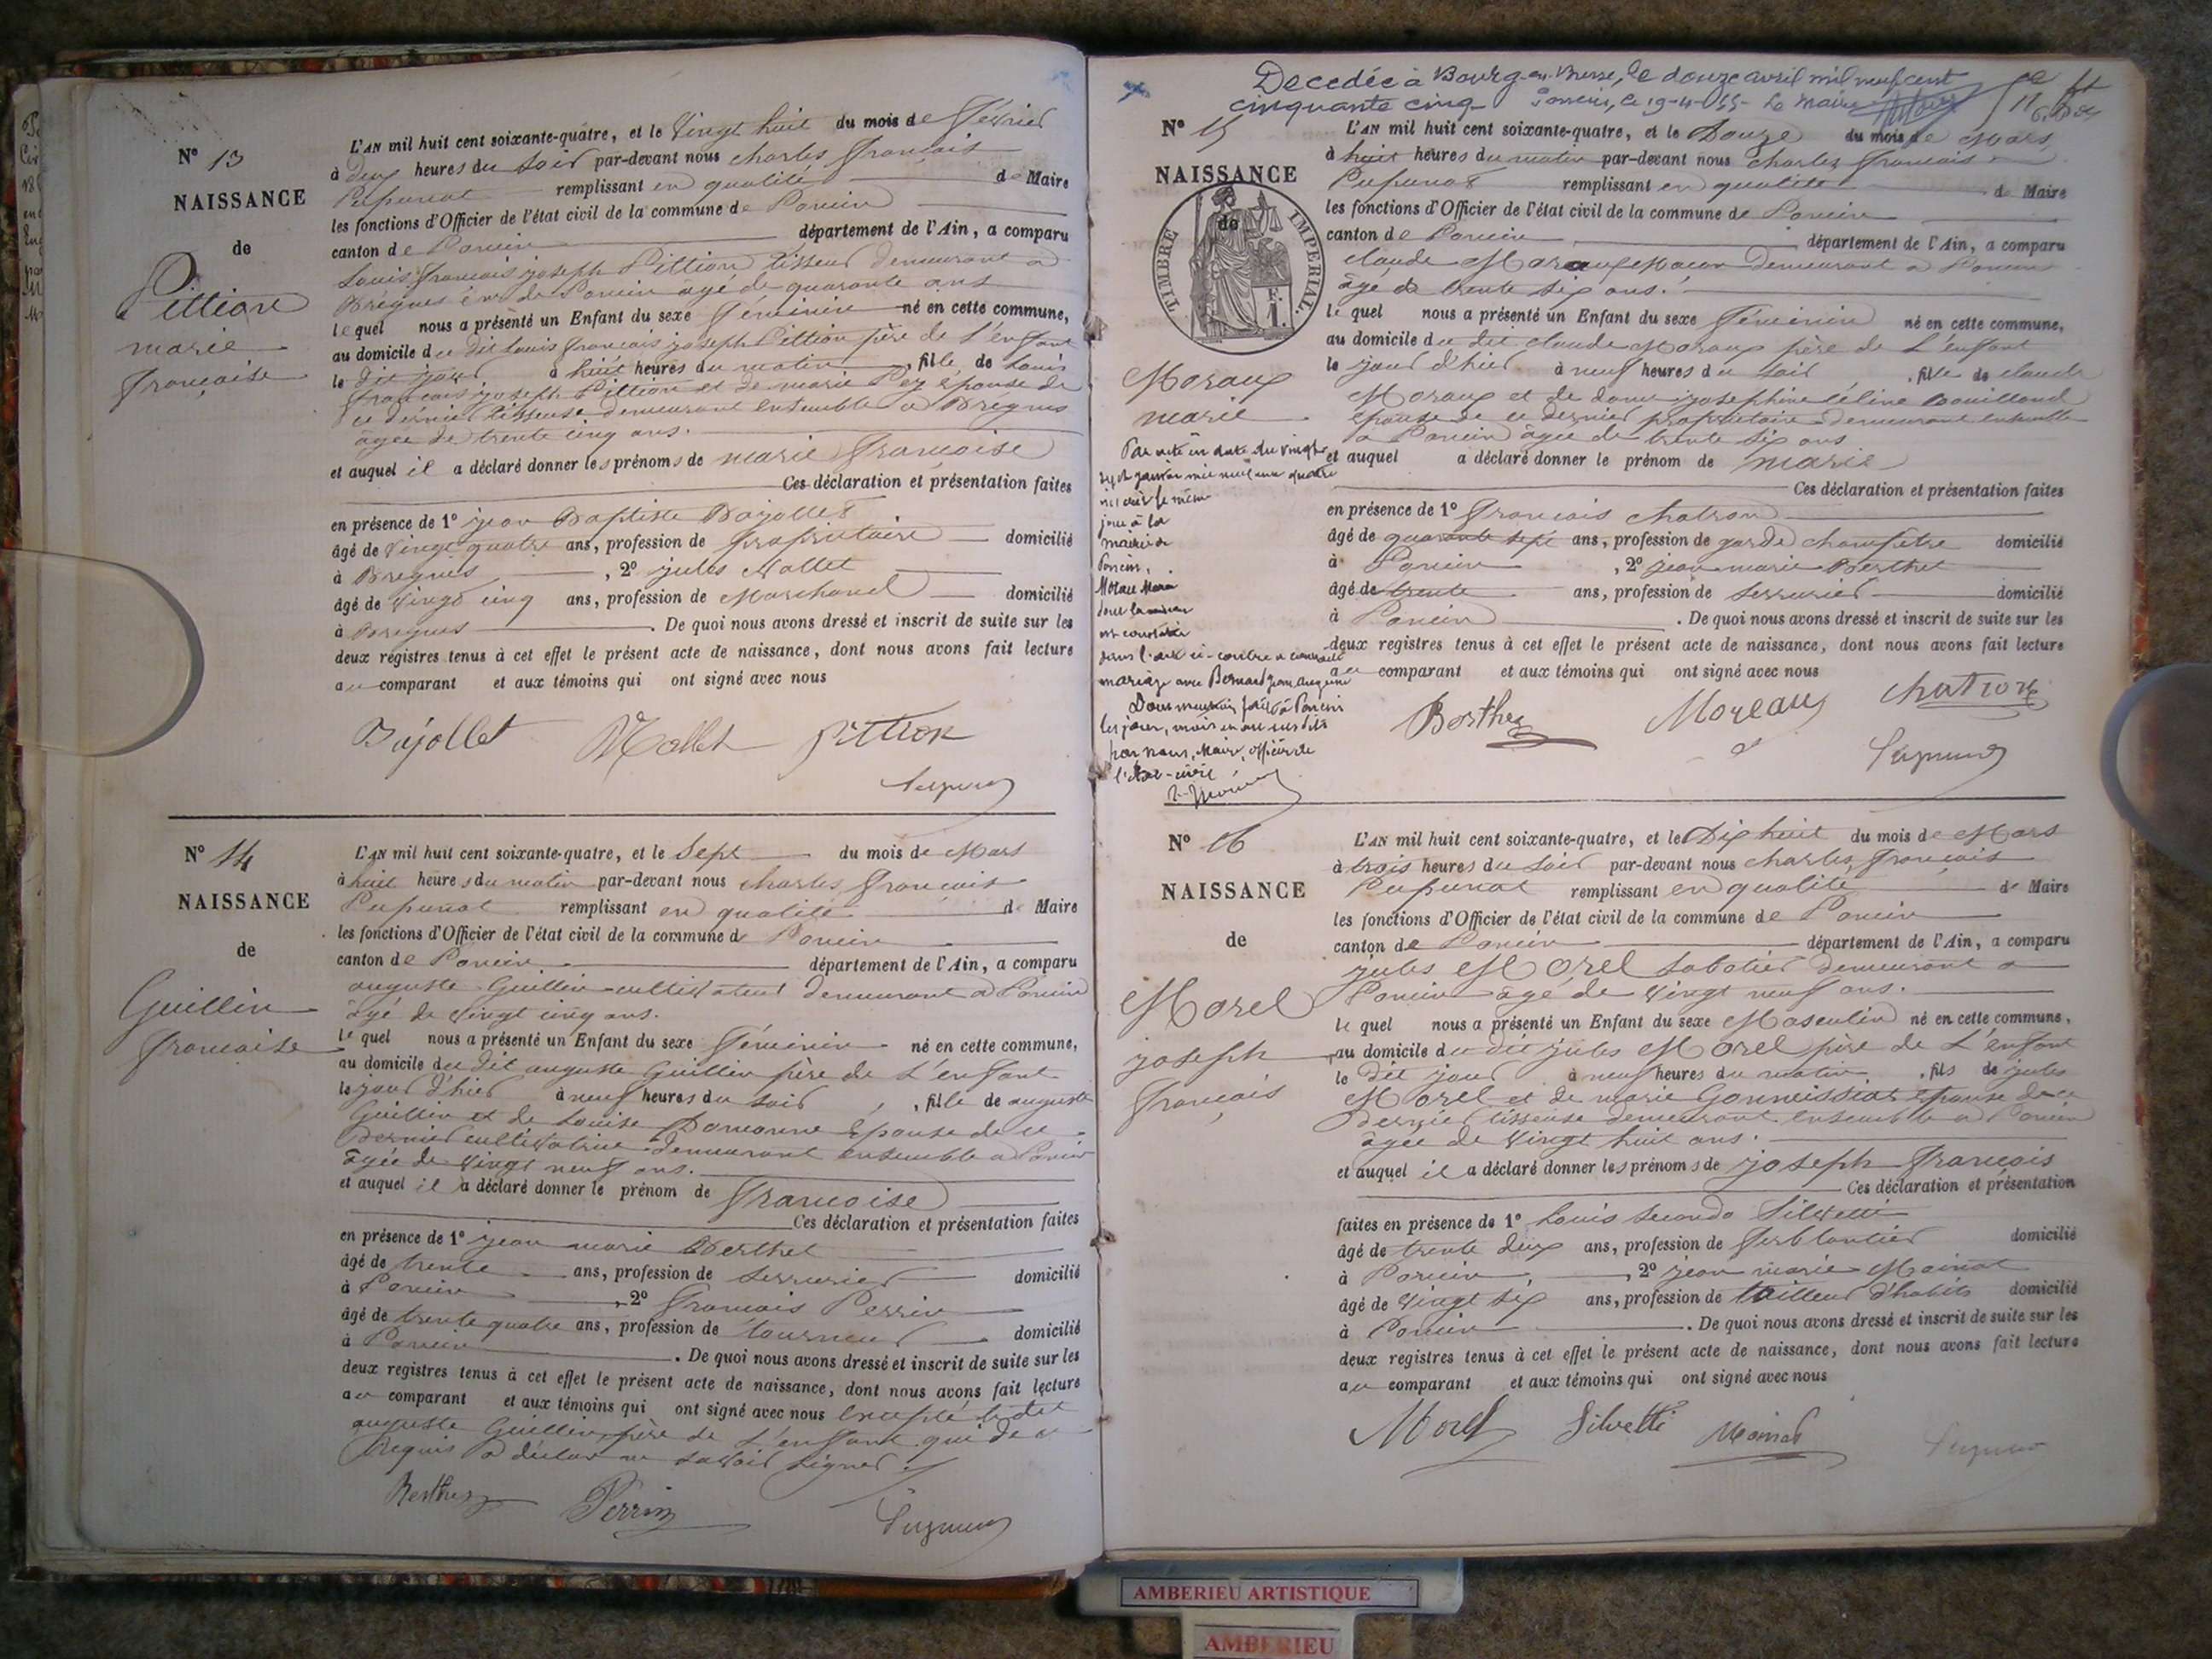 N° 13
NAISSANCE
de
Pittion
marie
françoise
L'AN mil huit cent soixante-quatre, et le Vingt huit du mois de février
à deux heures du soir par-devant nous charles françois
Pupunat remplissant en qualité de Maire
les fonctions d'Officier de l'état civil de la commune de Poncin
canton de Poncin département de l'Ain, a comparu
Louis françois joseph Pittion tisseur demeurant a
Bregnes de Poncin âgé de quarante ans
lequel nous a présenté un Enfant du sexe féminin né en cette commune,
au domicile du dit Louis françois joseph Pittion père de l'enfant
le dit jour à huit heures du matin, fille de Louis
françois joseph Pittion et de marie Pey épouse de
ce dernier tisseuse demeurant ensemble a Bregnes
âgée de trente cinq ans.
et auquel il a déclaré donner les prénoms de marie françoise
Ces déclaration et présentation faites
en présence de 1° jean Baptiste Bajollet
âgé de vingt quatre ans, profession de propriétaire domicilié
à Bregnes, 2° jules Mollet
âgé de vingt cinq ans, profession de Marchand domicilié
à Bregnes. De quoi nous avons dressé et inscrit de suite sur les
deux registres tenus à cet effet le présent acte de naissance, dont nous avons fait lecture
au comparant et aux témoins qui ont signé avec nous
Bajollet Mollet Pittion
Pupunat
N° 14
NAISSANCE
de
Guillin
françoise
L'AN mil huit cent soixante-quatre, et le Sept du mois de Mars
à huit heures du matin par-devant nous charles françois
Pupunat remplissant en qualité de Maire
les fonctions d'Officier de l'état civil de la commune de Poncin
canton de Poncin département de l'Ain, a comparu
auguste Guillin cultivateur demeurant a Poncin
âgé de vingt cinq ans.
le quel nous a présenté un Enfant du sexe féminin né en cette commune,
au domicile du dit auguste Guillin père de l'enfant
le jour d'hier à neuf heures du soir, fille de auguste
Guillin et de Louise épouse de ce
dernier cultivatrice demeurant ensemble a Poncin
âgée de vingt neuf ans.
et auquel il a déclaré donner le prénom de françoise
Ces déclaration et présentation faites
en présence de 1° jean marie Berthet
âgé de trente ans, profession de serrurier domicilié
à Poncin, 2° françois Perrin
âgé de trente quatre ans, profession de tourneur domicilié
à Poncin. De quoi nous avons dressé et inscrit de suite sur les
deux registres tenus à cet effet le présent acte de naissance, dont nous avons fait lecture
au comparant et aux témoins qui ont signé avec nous excepté le dit
auguste Guillin père de l'enfant qui de ce
Requis a déclaré ne savoir signer.
Berthet Perrin
Pupunat
Decedée à Bourg-en-Bresse, le douze avril mil neuf cent
cinquante cinq Poncin, le 19-4-55- Le Maire
N° 15
NAISSANCE
de
TIMBRE IMPERIAL
1 F.
Moraux
marie
Par acte en date du vingt
sept janvier mil neuf cent quatre
le même
jour à la
mairie de
Poncin,
Moraux Marie
dont la naissance
est constatée
dans l'acte ci-contre a contracté
mariage avec Bernard Jean
Dont mention faite à Poncin
les jour, mois et an susdits
par nous, Maire, officier de
l'état-civil
L'AN mil huit cent soixante-quatre, et le Douze du mois de Mars
à huit heures du matin par-devant nous charles françois
Pupunat remplissant en qualité de Maire
les fonctions d'Officier de l'état civil de la commune de Poncin
canton de Poncin département de l'Ain, a comparu
claude Moraux Macon demeurant a Poncin
âgé de trente six ans.
le quel nous a présenté un Enfant du sexe féminin né en cette commune,
au domicile du dit claude Moraux père de l'enfant
le jour d'hier à neuf heures du soir, fille de claude
Moraux et de dame josephine céline Bouilloud
épouse de ce dernier propriétaire demeurant ensemble
a Poncin âgée de trente six ans
et auquel a déclaré donner le prénom de marie
Ces déclaration et présentation faites
en présence de 1° françois chatron
âgé de quarante sept ans, profession de garde champêtre domicilié
à Poncin, 2° jean marie Berthet
âgé de trente ans, profession de serrurier domicilié
à Poncin. De quoi nous avons dressé et inscrit de suite sur les
deux registres tenus à cet effet le présent acte de naissance, dont nous avons fait lecture
au comparant et aux témoins qui ont signé avec nous
Berthet Moreaux chatron
Pupunat
N° 16
NAISSANCE
de
Morel
joseph
françois
L'AN mil huit cent soixante-quatre, et le Dix huit du mois de Mars
à trois heures du soir par-devant nous charles françois
Pupunat remplissant en qualité de Maire
les fonctions d'Officier de l'état civil de la commune de Poncin
canton de Poncin département de l'Ain, a comparu
jules Morel sabotier demeurant a
Poncin âgé de vingt neuf ans.
le quel nous a présenté un Enfant du sexe Masculin né en cette commune,
au domicile du dit jules Morel père de l'enfant
le dit jour à neuf heures du matin, fils de jules
Morel et de marie Gonneissiat épouse de ce
dernier tisseuse demeurant ensemble a Poncin
âgée de vingt huit ans.
et auquel il a déclaré donner les prénoms de joseph françois
Ces déclaration et présentation
faites en présence de 1° Louis Secondo Silvetti
âgé de trente deux ans, profession de ferblantier domicilié
à Poncin, 2° jean marie Moinat
âgé de vingt six ans, profession de tailleur d'habits domicilié
à Poncin. De quoi nous avons dressé et inscrit de suite sur les
deux registres tenus à cet effet le présent acte de naissance, dont nous avons fait lecture
au comparant et aux témoins qui ont signé avec nous
Morel Silvetti Moinat Pupunat
AMBERIEU ARTISTIQUE
AMBERIEU